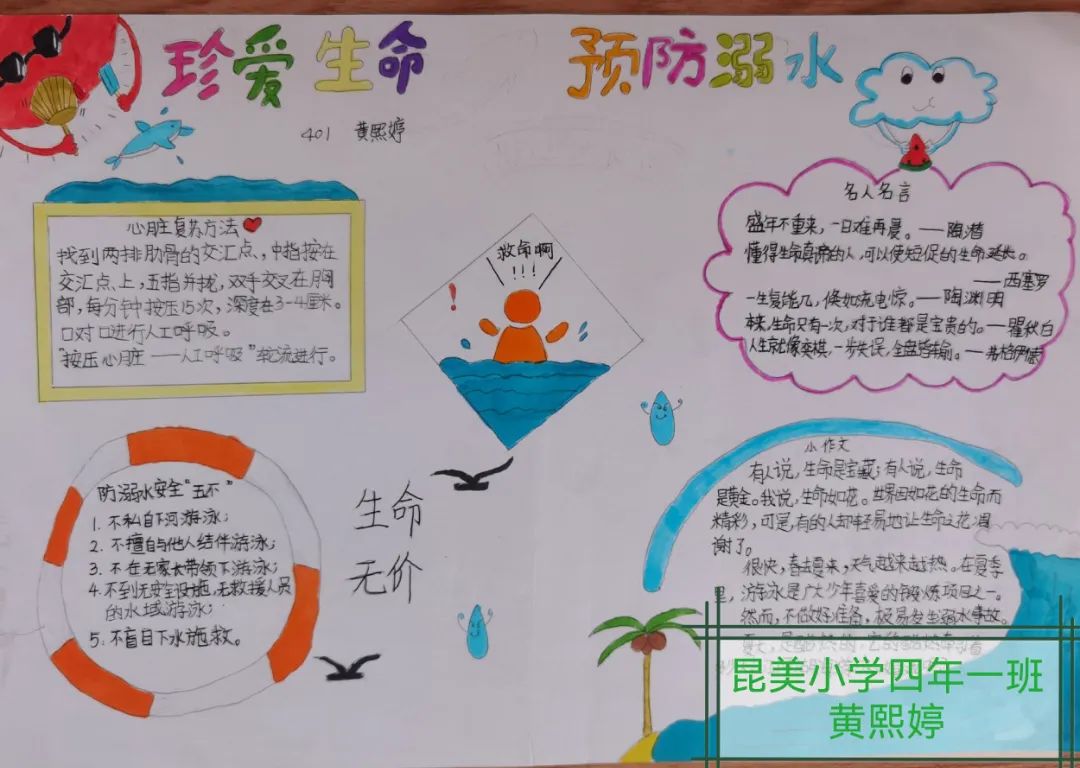 珍爱生命
预防溺水
401 黄熙婷
心脏复苏方法
找到两排肋骨的交汇点,中指按在
交汇点上,五指并拢,双手交叉在胸
部,每分钟按压15次,深度在3-4厘米。
口对口进行人工呼吸。
“按压心脏——人工呼吸”轮流进行。
救命啊
!!!
!
名人名言
盛年不重来,一日难再晨。——陶潜
懂得生命真谛的人,可以使短促的生命延长。
——西塞罗
一生复能几,倏如流电惊。——陶渊明
本来,生命只有一次,对于谁都是宝贵的。——瞿秋白
人生就像奕棋,一步失误,全盘皆输。——弗格伊德
防溺水安全“五不”
1. 不私自下河游泳;
2. 不擅自与他人结伴游泳;
3. 不在无家长带领下游泳;
4. 不到无安全设施,无救援人员
的水域游泳;
5. 不盲目下水施救。
生命
无价
小作文
有人说,生命是宝藏;有人说,生命
是黄金。我说,生命如花。世界因如花的生命而
精彩,可是,有的人却轻易地让生命之花凋
谢了。
很快,春去夏来,天气越来越热,在夏季
里,游泳是广大少年喜爱的锻炼项目之一。
然而,不做好准备,极易发生溺水事故。
昆美小学四年一班
黄熙婷